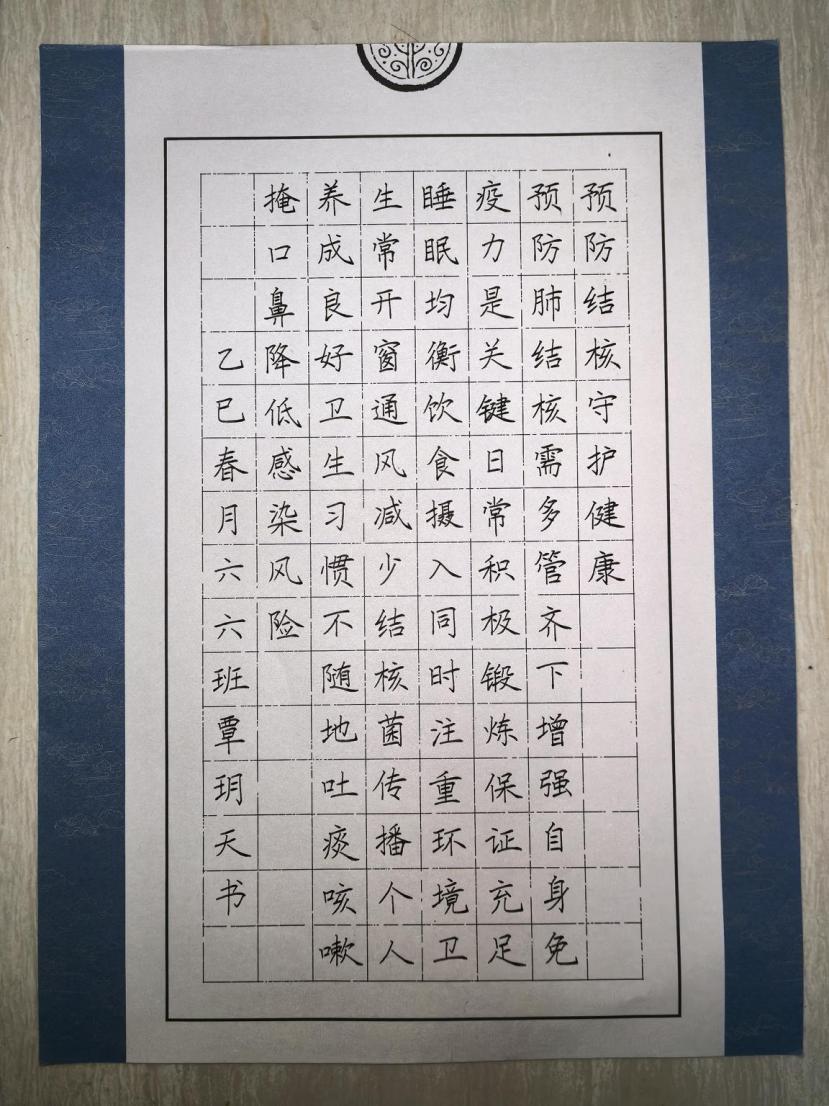 预防结核守护健康
预防肺结核需多管齐下增强自身免
疫力是关键日常积极锻炼保证充足
睡眠均衡饮食摄入同时注重环境卫
生常开窗通风减少结核菌传播个人
养成良好卫生习惯不随地吐痰咳嗽
掩口鼻降低感染风险
乙巳春月六六班覃玥天书